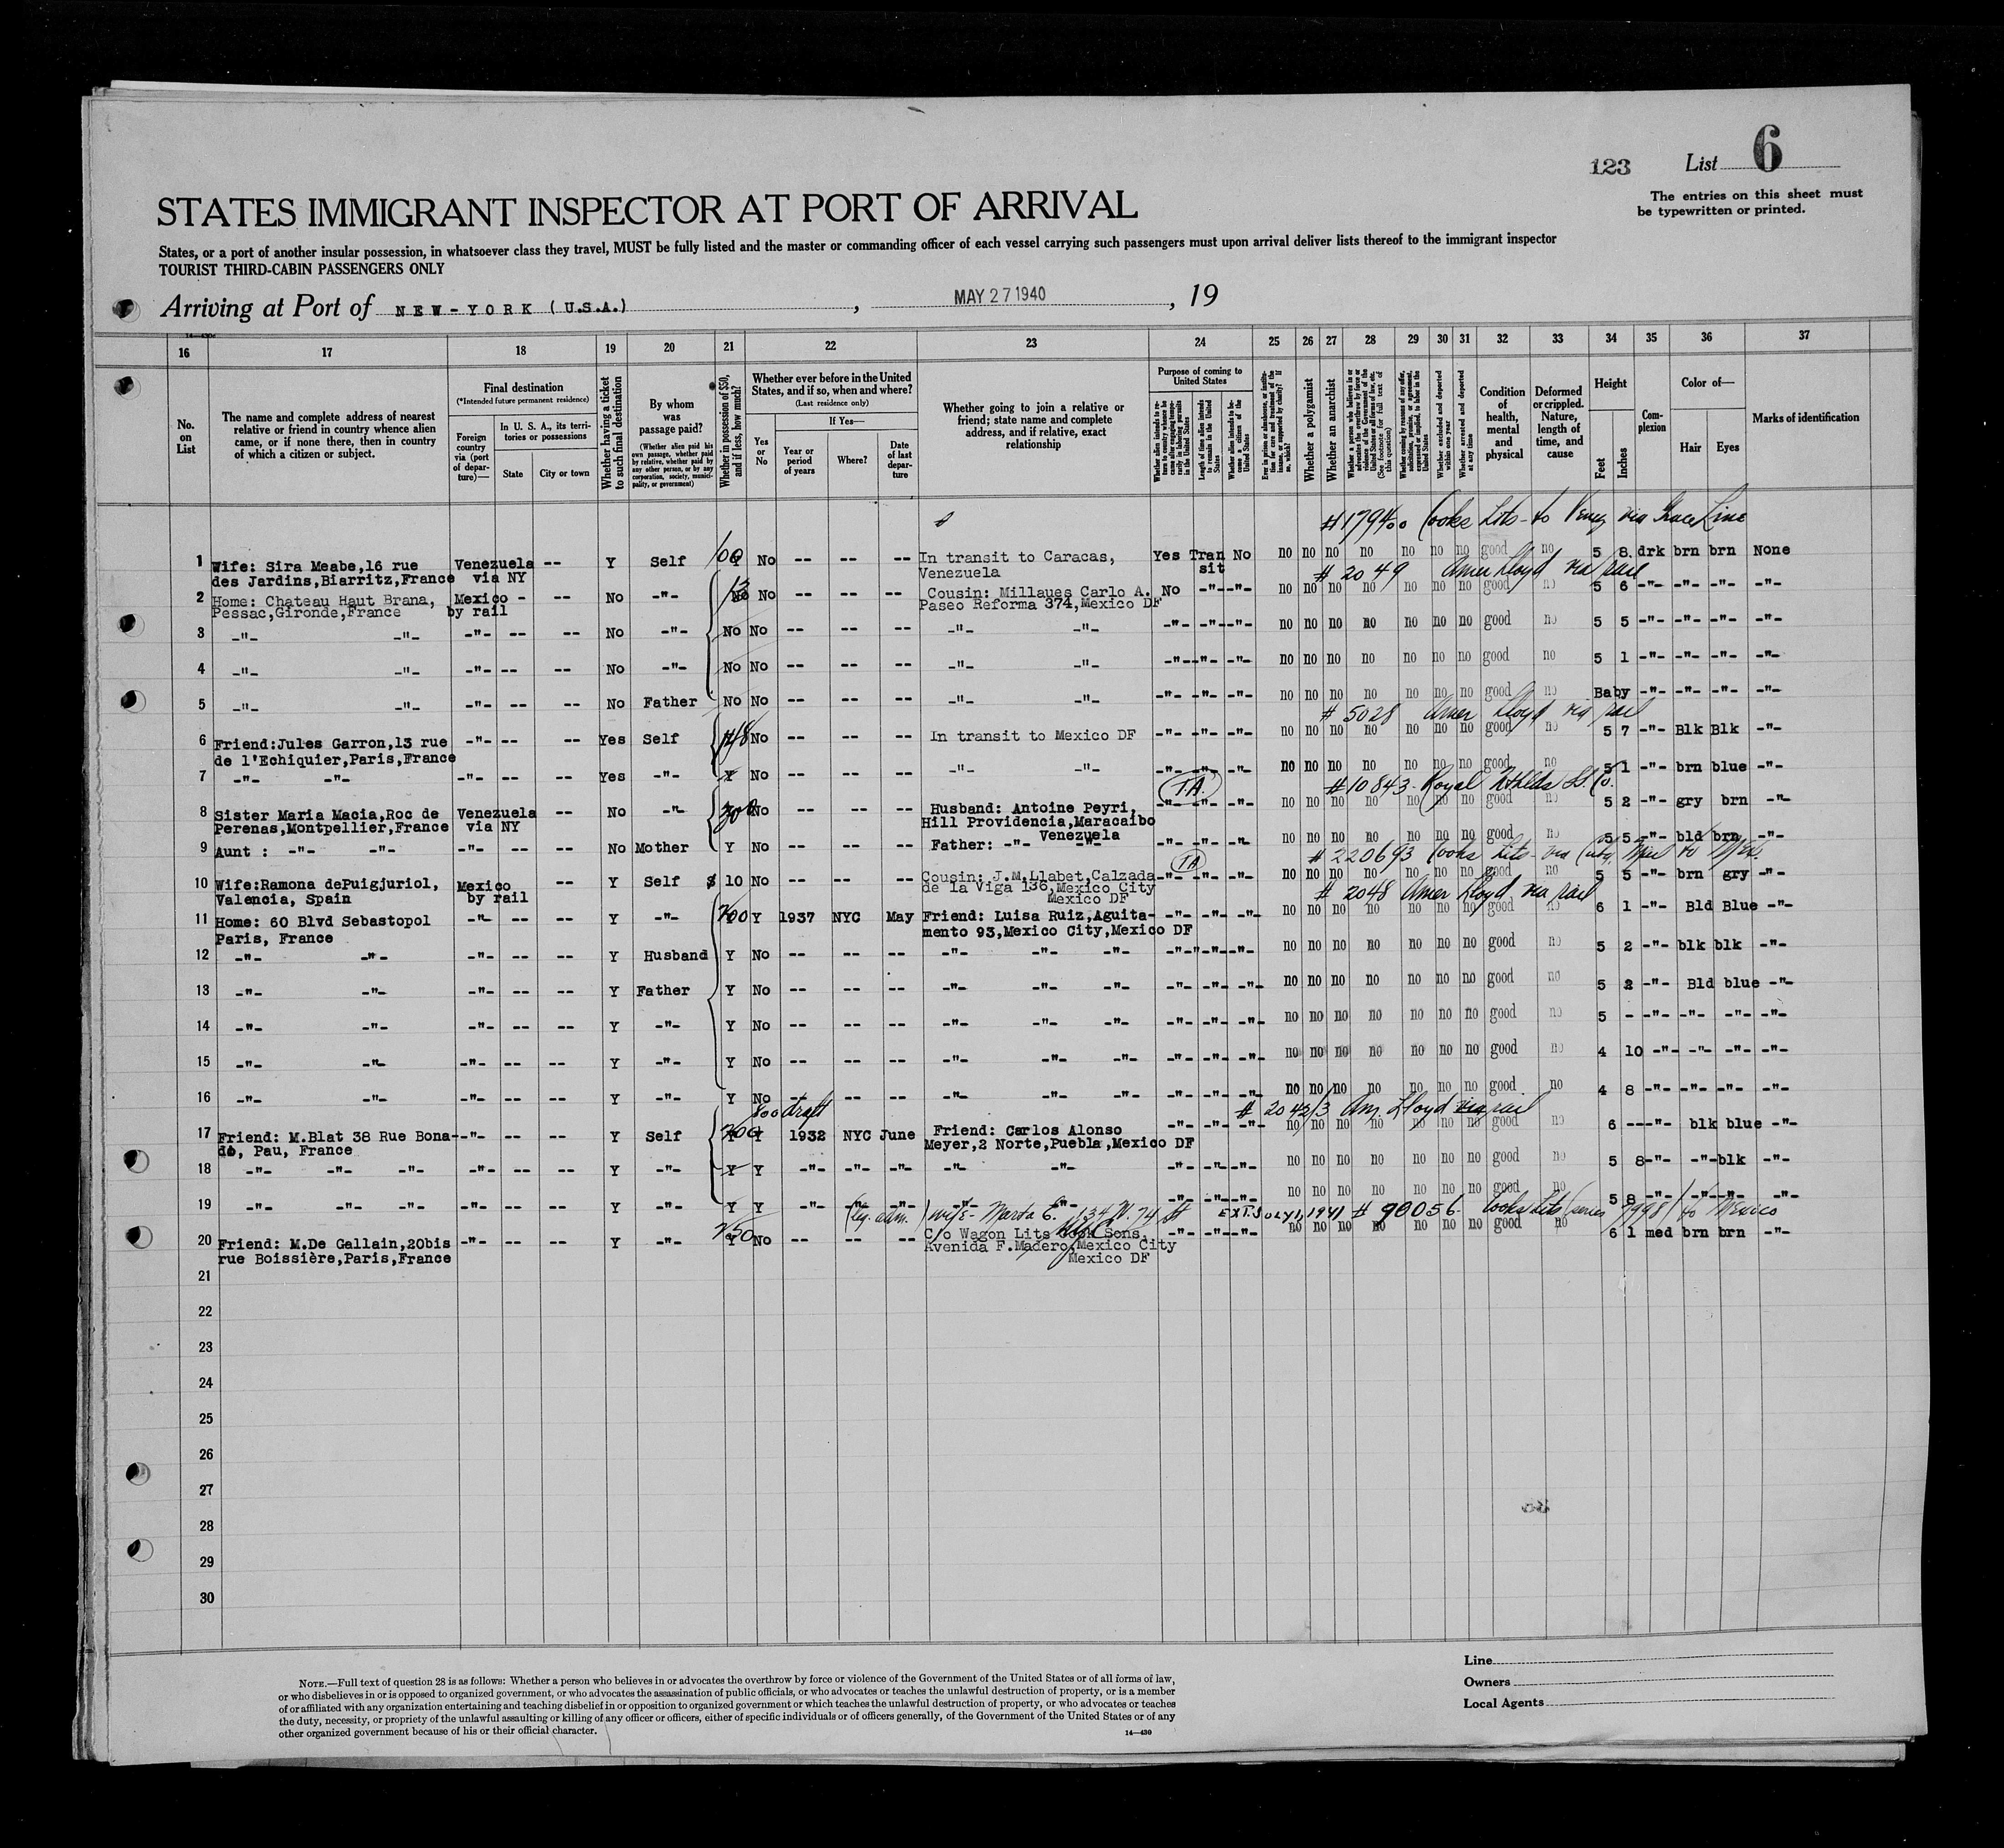 123 List 6
The entries on this sheet must
be typewritten or printed.
STATES IMMIGRANT INSPECTOR AT PORT OF ARRIVAL
States, or a port of another insular possession, in whatsoever class they travel, MUST be fully listed and the master or commanding officer of each vessel carrying such passengers must upon arrival deliver lists thereof to the immigrant inspector
TOURIST THIRD-CABIN PASSENGERS ONLY
Arriving at Port of NEW-YORK (U.S.A.) , MAY 27 1940 , 19
16 17 18 19 20 21 22 23 24 25 26 27 28 29 30 31 32 33 34 35 36 37
No. on List
The name and complete address of nearest relative or friend in country whence alien came, or if none there, then in country of which a citizen or subject.
Final destination
(*Intended future permanent residence)
Foreign country via (port of departure)—
In U. S. A., its territories or possessions
State City or town
Whether having a ticket to such final destination
By whom was passage paid?
(Whether alien paid his own passage, whether paid by relative, whether paid by any other person, or by any corporation, society, municipality, or government)
Whether in possession of $50, and if less, how much?
Whether ever before in the United States, and if so, when and where?
(Last residence only)
Yes or No
If Yes—
Year or period of years Where? Date of last departure
Whether going to join a relative or friend; state name and complete address, and if relative, exact relationship
Purpose of coming to United States
Whether a polygamist
Whether an anarchist
Condition of health, mental and physical
Deformed or crippled. Nature, length of time, and cause
Height
Feet Inches
Complexion
Color of—
Hair Eyes
Marks of identification
#17940 Cooks Lits - to Venez via Grace Line
1 Wife: Sira Meabe,16 rue Venezuela -- Y Self 100 No -- -- -- In transit to Caracas, Yes Tran No no no no no no no no good no 5 8 drk brn brn None
des Jardins,Biarritz,France via NY Venezuela sit # 2049 Amer Lloyd via rail
2 Home: Chateau Haut Brana, Mexico - -- No -"- No No -- -- -- Cousin: Millaues Carlo A. No -"- -"- no no no no no no no good no 5 6 -"- -"- -"- -"-
Pessac,Gironde,France by rail Paseo Reforma 374,Mexico DF
3 -"- -"- -"- -- -- No -"- No No -- -- -- -"- -"- -"- -"- -"- no no no no no no no good no 5 5 -"- -"- -"- -"-
4 -"- -"- -"- -- -- No -"- No No -- -- -- -"- -"- -"- -"- -"- no no no no no no no good no 5 1 -"- -"- -"- -"-
5 -"- -"- -"- -- -- No Father No No -- -- -- -"- -"- -"- -"- -"- no no no no no no no good no Baby -"- -"- -"- -"-
# 5028 Amer Lloyd via rail
6 Friend:Jules Garron,13 rue -"- -- -- Yes Self No -- -- -- In transit to Mexico DF -"- -"- -"- no no no no no no no good no 5 7 -"- Blk Blk -"-
de l'Echiquier,Paris,France
7 -"- -"- -"- -- -- Yes -"- Y No -- -- -- -"- -"- -"- -"- -"- no no no no no no no good no 5 1 -"- brn blue -"-
(T.A.) #10843- Royal Nthlds St. Co.
8 Sister Maria Macia,Roc de Venezuela -- No -"- 300 No -- -- -- Husband: Antoine Peyri, -"- -"- -"- no no no no no no no good no 5 2 -"- gry brn -"-
Perenas,Montpellier,France via NY Hill Providencia,Maracaibo
Venezuela
9 Aunt : -"- -"- -"- -- -- No Mother Y No -- -- -- Father: -"- -"- -"- -"- -"- no no no no no no no good no 5 5 -"- bld brn -"-
(TA) # 220693 Cooks Lits - via Cuba Mail to Mex.
10 Wife:Ramona dePuigjuriol, Mexico -- Y Self $ 10 No -- -- -- Cousin: J.M.Llabet,Calzada -"- -"- -"- no no no no no no no good no 5 5 -"- brn gry -"-
Valencia, Spain by rail de la Viga 136,Mexico City
Mexico DF # 2048 Amer Lloyd via rail
11 Home: 60 Blvd Sebastopol -"- -- -- Y -"- 200 Y 1937 NYC May Friend: Luisa Ruiz,Aguita- -"- -"- -"- no no no no no no no good no 6 1 -"- Bld Blue -"-
Paris, France mento 93,Mexico City,Mexico DF
12 -"- -"- -"- -- -- Y Husband Y No -- -- -- -"- -"- -"- -"- -"- -"- no no no no no no no good no 5 2 -"- blk blk -"-
13 -"- -"- -"- -- -- Y Father Y No -- -- -- -"- -"- -"- -"- -"- -"- no no no no no no no good no 5 2 -"- Bld blue -"-
14 -"- -"- -"- -- -- Y -"- Y No -- -- -- -"- -"- -"- -"- -"- -"- no no no no no no no good no 5 - -"- -"- -"- -"-
15 -"- -"- -"- -- -- Y -"- Y No -- -- -- -"- -"- -"- -"- -"- -"- no no no no no no no good no 4 10 -"- -"- -"- -"-
16 -"- -"- -"- -- -- Y -"- Y No -- -- -- -"- -"- -"- -"- -"- -"- no no no no no no no good no 4 8 -"- -"- -"- -"-
800 draft # 2042/3 Am. Lloyd via rail
17 Friend: M.Blat 38 Rue Bona- -"- -- -- Y Self 200 Y 1932 NYC June Friend: Carlos Alonso -"- -"- -"- no no no no no no no good no 6 -- -"- blk blue -"-
do, Pau, France Meyer,2 Norte,Puebla,Mexico DF
18 -"- -"- -"- -"- -- -- Y -"- Y Y -"- -"- -"- -"- -"- -"- -"- -"- no no no no no no no good no 5 8 -"- -"- blk -"-
19 -"- -"- -"- -"- -- -- Y -"- Y Y -"- -"- -"- -"- -"- -"- -"- -"- no no no no no no no good no 5 8 -"- -"- -"- -"-
wife - Marta E. 134 W. 74 St EXT. JULY 1, 1941 # 90056- Cooks Lits (series 7998) to Mexico
20 Friend: M.De Gallain,20bis -"- -- -- Y -"- 250 No -- -- -- C/o Wagon Lits Cook Sons, -"- -"- -"- no no no no no no no good no 6 1 med brn brn -"-
rue Boissière,Paris,France Avenida F.Madero,Mexico City
Mexico DF
21
22
23
24
25
26
27
28
29
30
Line
Owners
Local Agents
NOTE.—Full text of question 28 is as follows: Whether a person who believes in or advocates the overthrow by force or violence of the Government of the United States or of all forms of law,
or who disbelieves in or is opposed to organized government, or who advocates the assassination of public officials, or who advocates or teaches the unlawful destruction of property, or is a member
of or affiliated with any organization entertaining and teaching disbelief in or opposition to organized government or which teaches the unlawful destruction of property, or who advocates or teaches
the duty, necessity, or propriety of the unlawful assaulting or killing of any officer or officers, either of specific individuals or of officers generally, of the Government of the United States or of any
other organized government because of his or their official character. 14—430